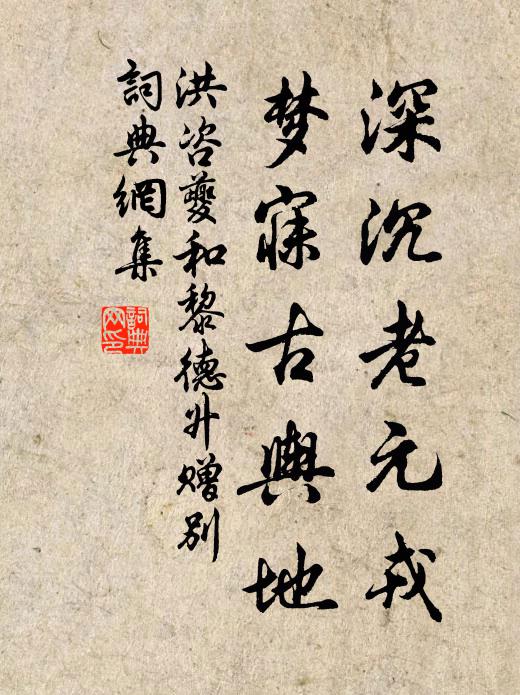 深沉老元戎
梦寐古舆地
洪咨夔和黎德升赠别
詞典網集
詞典网印